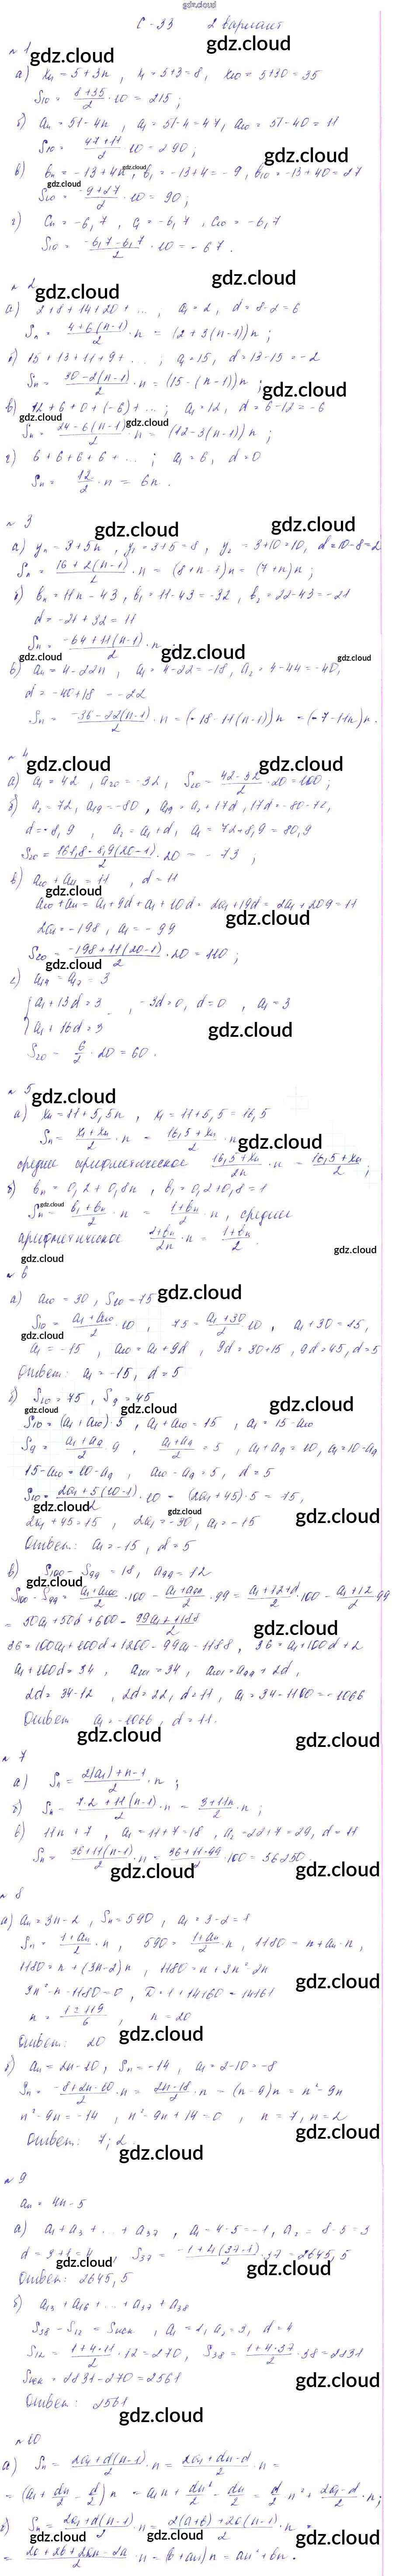 gdz.cloud
С-33 2 вариант
№ 1
а) xn = 5+3n, x1 = 5+3=8, x10 = 5+30=35
S10 = (8+35)/2 · 10 = 215;
б) an = 51-4n, a1 = 51-4=47, a10 = 51-40=11
S10 = (47+11)/2 · 10 = 290;
в) bn = -13+4n, b1 = -13+4=-9, b10 = -13+40=27
S10 = (-9+27)/2 · 10 = 90;
г) cn = -6,7, c1 = -6,7, c10 = -6,7
S10 = (-6,7-6,7)/2 · 10 = -67.
№ 2
а) 2+8+14+20+ ..., a1 = 2, d = 8-2 = 6
Sn = (4+6(n-1))/2 · n = (2+3(n-1))n;
б) 15+13+11+9+ ...; a1 = 15, d = 13-15 = -2
Sn = (30-2(n-1))/2 · n = (15-(n-1))n;
в) 12+6+0+(-6)+ ...; a1 = 12, d = 6-12 = -6
Sn = (24-6(n-1))/2 · n = (12-3(n-1))n;
г) 6+6+6+6+ ...; a1 = 6, d = 0
Sn = 12/2 · n = 6n.
№ 3
а) yn = 3+5n, y1 = 3+5=8, y2 = 3+10=10, d=10-8=2
Sn = (16+2(n-1))/2 · n = (8+n-1)n = (7+n)n;
б) bn = 11n-43, b1 = 11-43=-32, b2 = 22-43=-21
d = -21+32 = 11
Sn = (-64+11(n-1))/2 · n
в) an = 4-22n, a1 = 4-22=-18, a2 = 4-44=-40,
d = -40+18 = -22
Sn = (-36-22(n-1))/2 · n = (-18-11(n-1))n = (-7-11n)n.
№ 4
а) a1 = 42, a20 = -32, S20 = (42-32)/2 · 20 = 100;
б) a2 = 72, a19 = -80, a19 = a2+17d, 17d = -80-72,
d = -8,9, a2 = a1+d, a1 = 72+8,9 = 80,9
S20 = (161,8-8,9(20-1))/2 · 20 = -73;
в) a10+a11 = 11, d = 11
a10+a11 = a1+9d+a1+10d = 2a1+19d = 2a1+209 = 11
2a1 = -198, a1 = -99
S20 = (-198+11(20-1))/2 · 20 = 110;
г) a14 = a17 = 3
{a1+13d = 3
a1+16d = 3, -3d=0, d=0, a1=3
S20 = 6/2 · 20 = 60.
№ 5
а) xn = 11+5,5n, x1 = 11+5,5 = 16,5
Sn = (x1+xn)/2 · n = (16,5+xn)/2 · n
среднее арифметическое (16,5+xn)/2n · n = (16,5+xn)/2;
б) bn = 0,2+0,8n, b1 = 0,2+0,8=1
Sn = (b1+bn)/2 · n = (1+bn)/2 · n, среднее
арифметическое (1+bn)/2n · n = (1+bn)/2.
№ 6
а) a10 = 30, S10 = 75
S10 = (a1+a10)/2 · 10, 75 = (a1+30)/2 · 10, a1+30 = 15,
a1 = -15, a10 = a1+9d, 9d = 30+15, 9d=45, d=5
Ответ: a1 = -15, d = 5
б) S10 = 75, S9 = 45
S10 = (a1+a10)·5, a1+a10 = 15, a1 = 15-a10
S9 = (a1+a9)/2 · 9, (a1+a9)/2 = 5, a1+a9 = 10, a1=10-a9
15-a10 = 10-a9, a10-a9 = 5, d = 5
S10 = (2a1+5(10-1))/2 · 10 = (2a1+45)·5 = 75,
2a1+45=15, 2a1 = -30, a1 = -15
Ответ: a1 = -15, d = 5
в) S100-S99 = 18, a99 = 12
S100-S99 = (a1+a100)/2 · 100 - (a1+a99)/2 · 99 = (a1+12+d)/2 · 100 - (a1+12)/2 · 99
= 50a1+50d+600 - (99a1+1188)/2
36 = 100a1+100d+1200-99a1-1188, 36 = a1+100d+12
a1+100d = 34, a101 = 34, a101 = a99+2d,
2d = 34-12, 2d = 22, d = 11, a1 = 34-1100 = -1066
Ответ a1 = -1066, d = 11.
№ 7
а) Sn = (2(a1)+n-1)/2 · n;
б) Sn = (7·2+11(n-1))/2 · n = (3+11n)/2 · n;
в) 11n+7, a1 = 11+7=18, a2 = 22+7=29, d=11
Sn = (36+11(n-1))/2 · n = (36+11·99)/2 · 100 = 56250.
№ 8
а) an = 3n-2, Sn = 590, a1 = 3-2=1
Sn = (1+an)/2 · n, 590 = (1+an)/2 · n, 1180 = n+an·n,
1180 = n+(3n-2)n, 1180 = n+3n²-2n
3n²-n-1180=0, D = 1+14160 = 14161
n = (1±119)/6, n = 20
Ответ: 20
б) an = 2n-10, Sn = -14, a1 = 2-10 = -8
Sn = (-8+2n-10)/2 · n = (2n-18)/2 · n = (n-9)n = n²-9n
n²-9n = -14, n²-9n+14=0, n = 7, n = 2
Ответ: 7; 2
№ 9
an = 4n-5
а) a1+a3+ ... +a37, a1 = 4-5 = -1, a2 = 8-5=3
d = 3+1 = 4, S37 = (-1+4(37-1))/2 · 37 = 2645,5
Ответ: 2645,5
б) a13+a16+ ... +a37+a38
S38-S12 = Sиск, a1 = 1, a2 = 3, d = 4
S12 = (1+4·11)/2 · 12 = 270, S38 = (1+4·37)/2 · 38 = 2831
Sиск = 2831-270 = 2561
Ответ: 2561
№ 10
а) Sn = (2a1+d(n-1))/2 · n = (2a1+dn-d)/2 · n =
= (a1+dn/2-d/2)n = a1n+dn²/2-dn/2 = d/2 · n²+(2a1-d)/2 · n;
б) Sn = (2a1+d(n-1))/2 · n = (2(a+b)+2a(n-1))/2 · n =
= (2a+2b+2an-2a)/2 · n = (b+an)n = an²+bn.
gdz.cloud